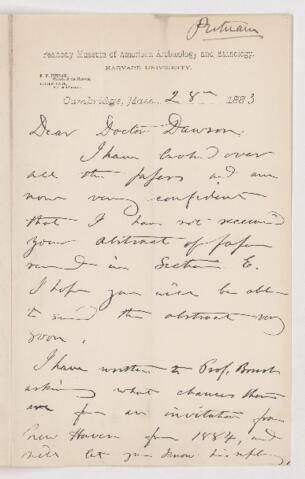 Putnam
Peabody Museum of American Archaeology and Ethnology,
HARVARD UNIVERSITY.
Cambridge, Mass. 28th 1883
Dear Doctor Dawson,
I have looked over
all the papers and am
now very confident
that I have not received
your abstract of paper
read in Section E.
I hope you will be able
to send the abstract very
soon.
I have written to Prof. Brush
asking what chances there
are for an invitation from
New Haven for 1884, and
will let you know his reply.